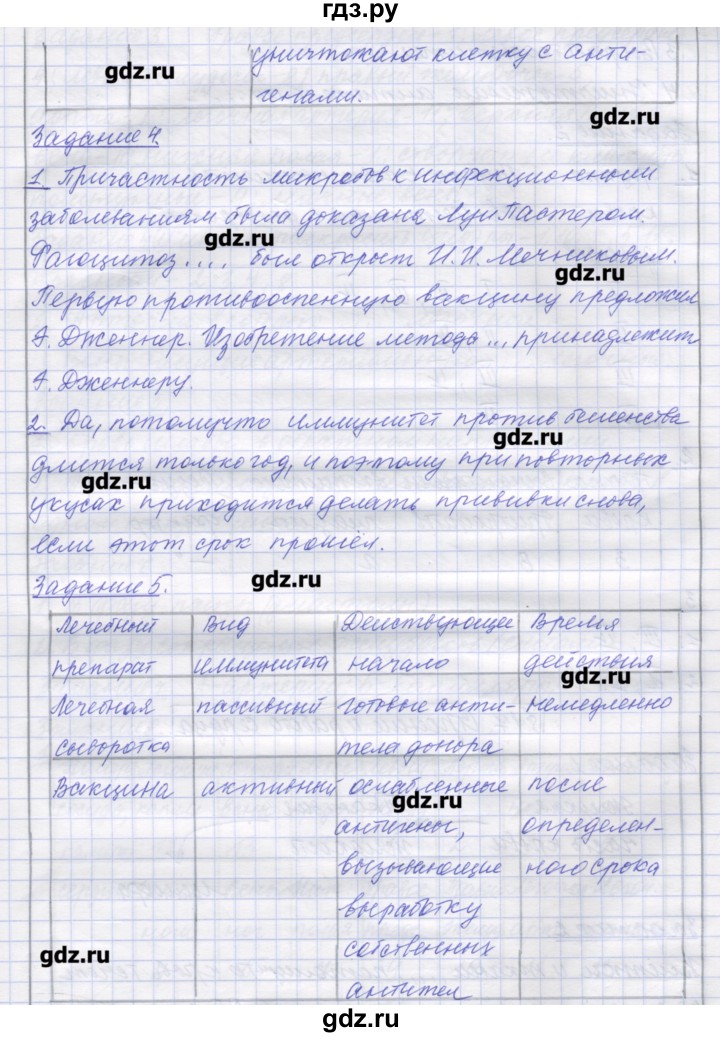 гдз.ру
уничтожают клетку с анти-
gdz.ru
генами.
gdz.ru
Задание 4.
1. Причастность микробов к инфекционным
заболеваниям была доказана Луи Пастером.
gdz.ru
Фагоцитоз .... был открыт И.И. Мечниковым.
gdz.ru
Первую противооспенную вакцину предложил
А. Дженнер. Изобретение метода ... принадлежит
А. Дженнеру.
2. Да, потому что иммунитет против бешенства
gdz.ru
длится только год, и поэтому при повторных
gdz.ru
укусах приходится делать прививки снова,
если этот срок прошёл.
Задание 5.
gdz.ru
Лечебный препарат
Вид иммунитета
Действующее начало
Время действия
gdz.ru
Лечебная сыворотка
пассивный
готовые анти-
тела донора
немедленно
Вакцина
активный
ослабленные
gdz.ru
антигены,
вызывающие
выработку
собственных
антител
после
определен-
ного срока
gdz.ru
gdz.ru